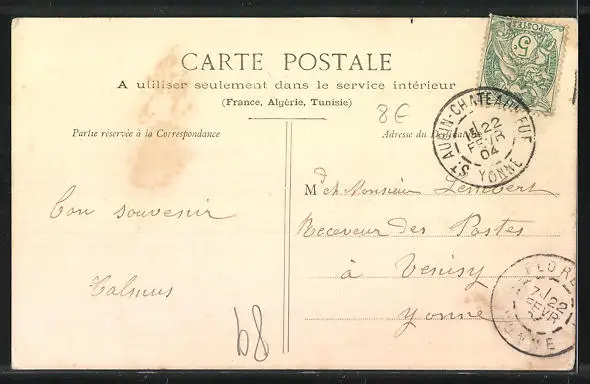 CARTE POSTALE
A utiliser seulement dans le service intérieur
(France, Algérie, Tunisie)
8€
Partie réservée à la Correspondance
Adresse du Destinataire
5c POSTES
ST AUBIN-CHATEAU-NEUF
22
FEVR
04
YONNE
Bon souvenir
Mr et Monsieur Lembert
Receveur des Postes
à Venisy
Yonne
22
FEVR
YONNE
68